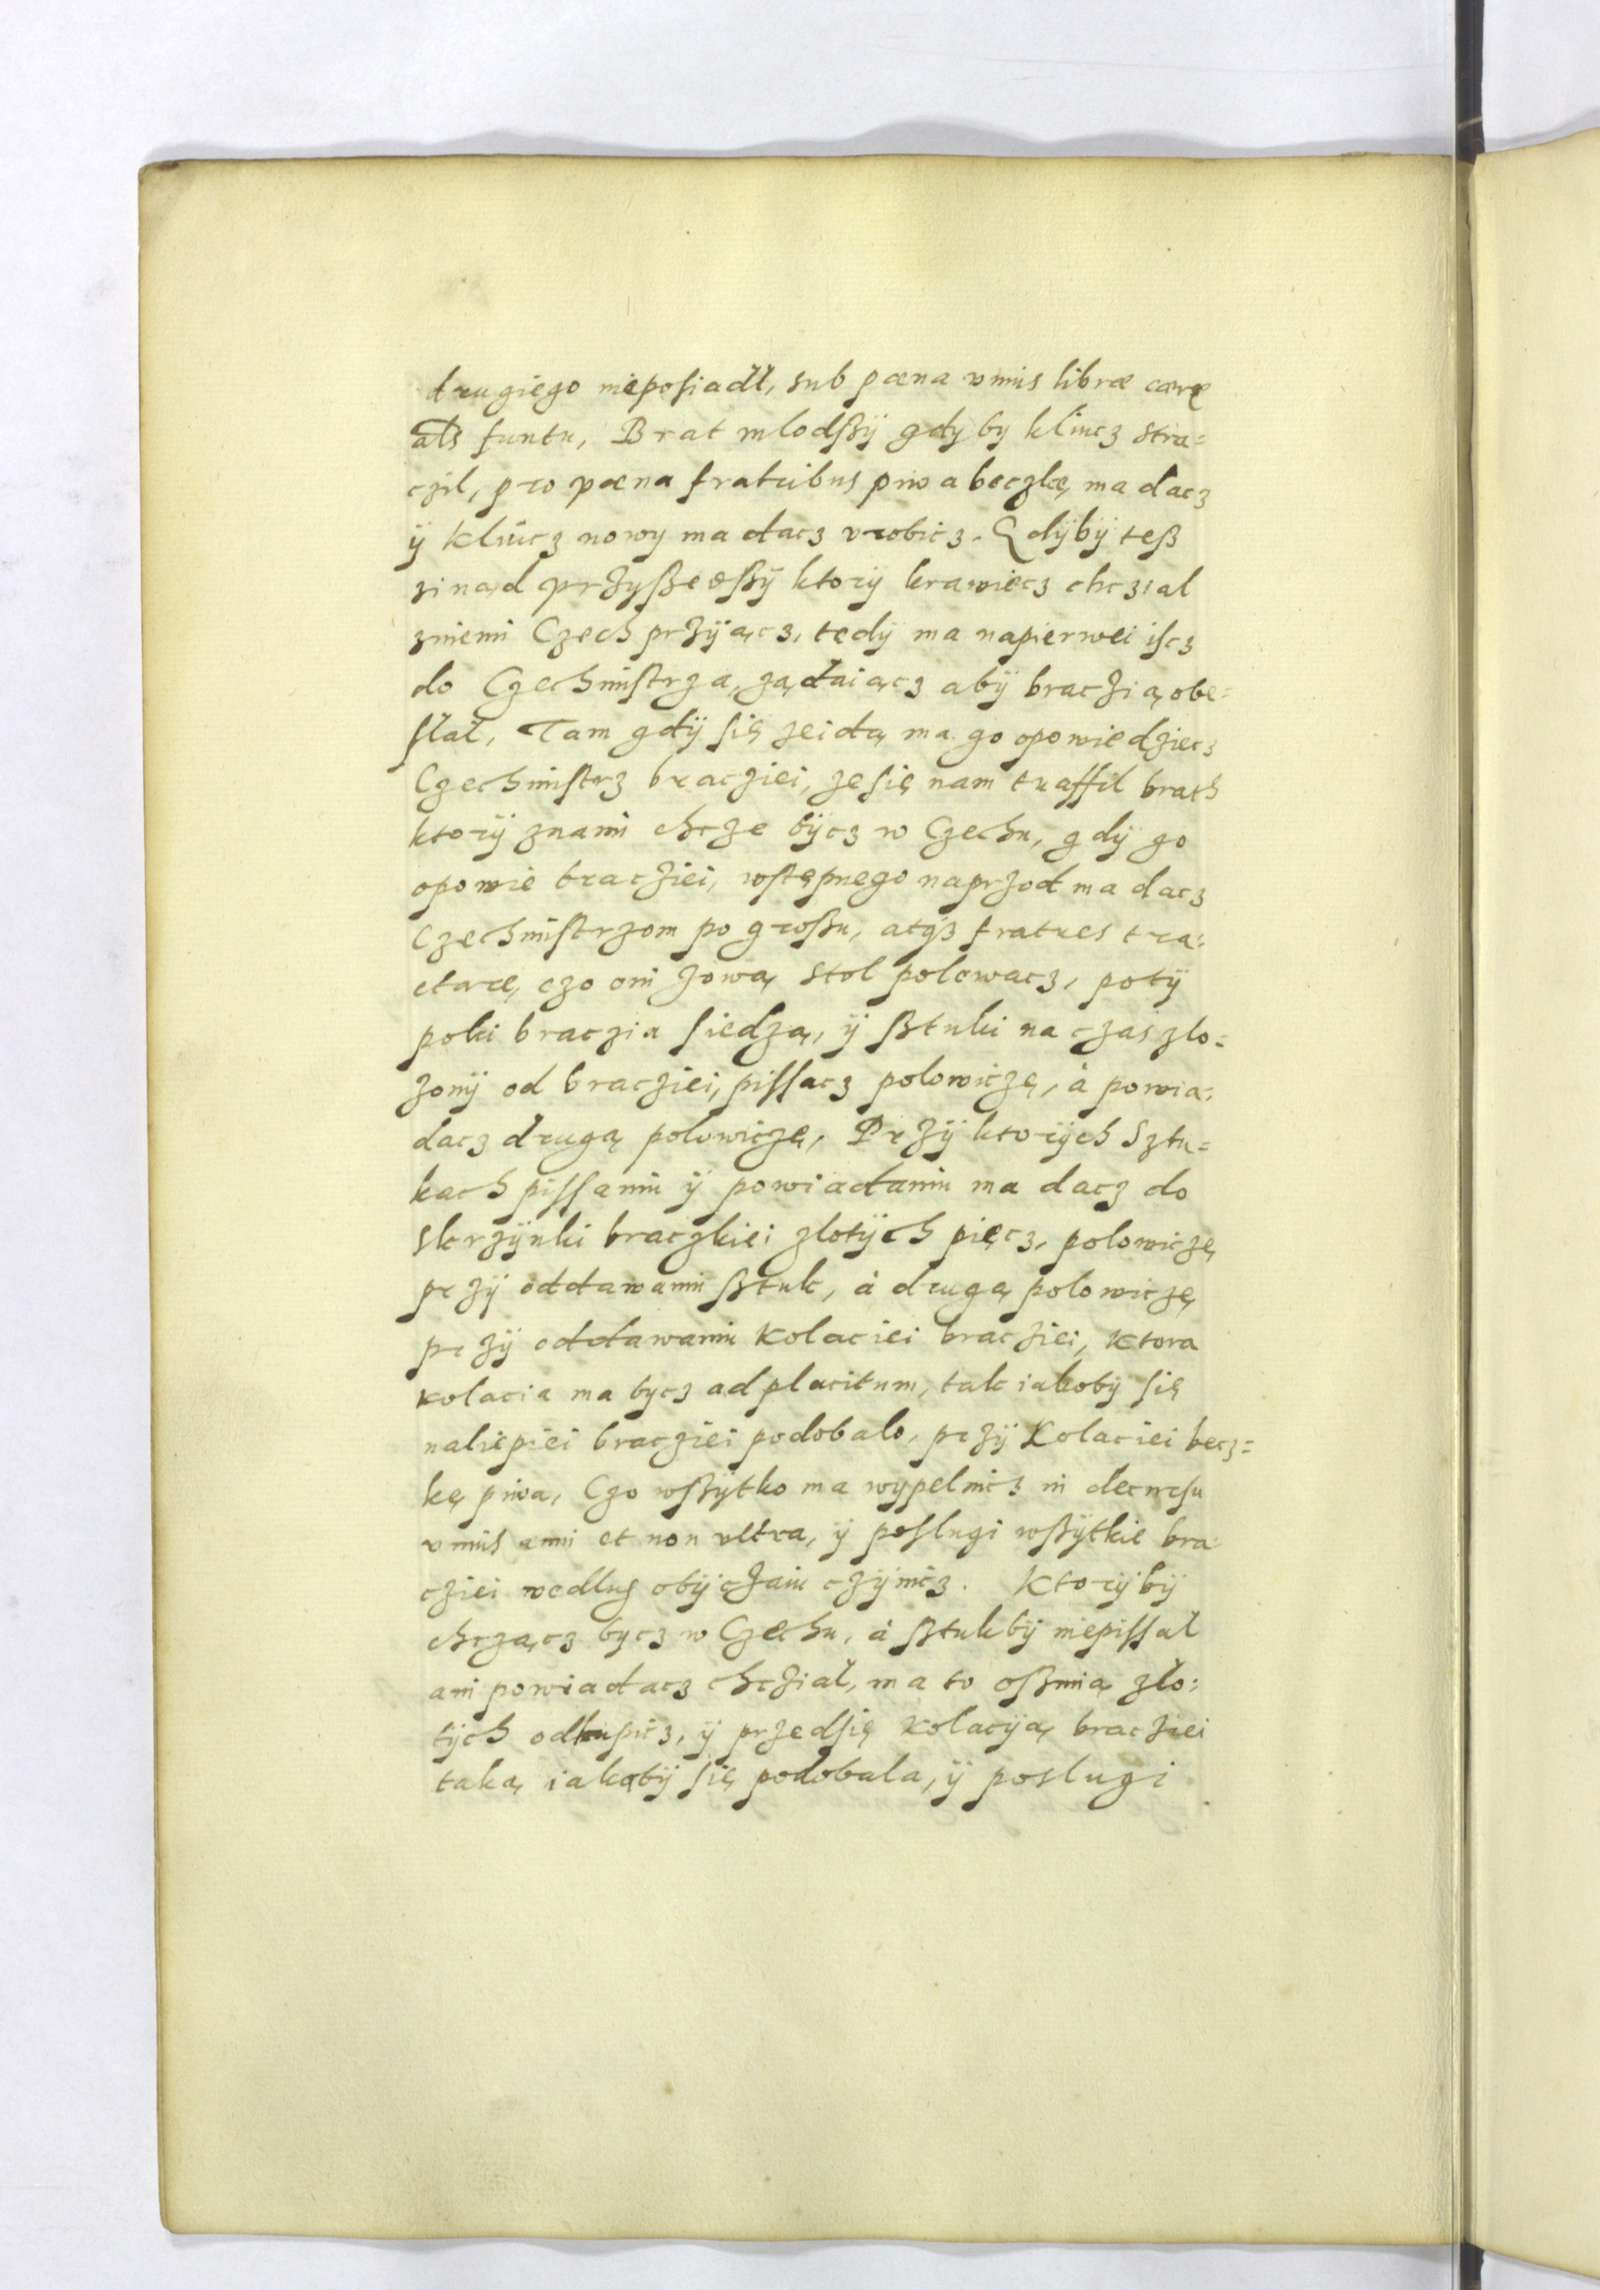 drugiego nieposiadł, sub pœna vnius libræ cæræ
als funtu, Brat mlodßÿ gdyby kliucz stra=
czil, pro pœna fratribus piwa beczkę ma dacz
ÿ kliucz nowy ma dacz vrobicz. Gdÿbÿ teß
zinąd przyßedßÿ ktorÿ krawiecz chczial
zniemi Czech przÿiącz, tedÿ ma napierwei iscz
do Czechmistrza, ządaiącz abÿ braczią obe=
słał, Tam gdÿ się zeidą ma go opowiedziecz
Czechmistrz bracziei, ze się nam traffil brath
ktorÿ znami chcze bÿcz w Czechu, gdÿ go
opowie bracziei, wstępnego naprzod ma dacz
Czechmistrzom po großu, a tÿz fratres tra=
ctare, czo oni zową stol polowacz, potÿ
poki braczia siedzą, ÿ ßtuki na czas zlo=
zonÿ od bracziei, pissacz polowiczę, à powia=
dacz drugą polowiczę, Przÿ ktorÿch Sztu=
kach pissaniu ÿ powiadaniu ma dacz do
skrzÿnki braczkiei zlotÿch pięcz, polowiczę
przÿ oddawaniu ßtuk, à drugą polowiczę
przÿ oddawaniu kolaciei bracziei, ktora
kolacia ma bycz ad placitum, tak iakobÿ się
naliepiei bracziei podobalo, przÿ Kolaciei becz=
kę piwa, Czo wßÿtko ma wypelnicz in decursu
vnius anni et non vltra, ÿ poslugi wßÿtkie bra=
cziei wedlug obÿczaiu czÿnicz. Ktorÿbÿ
chczącz bycz w Czechu, à ßtuk bÿ niepissał
ani powiadacz chcział, ma to oßmią zło=
tÿch odkupicz, ÿ przedsię kolacÿą bracziei
taką iakabÿ się podobala, ÿ poslugi